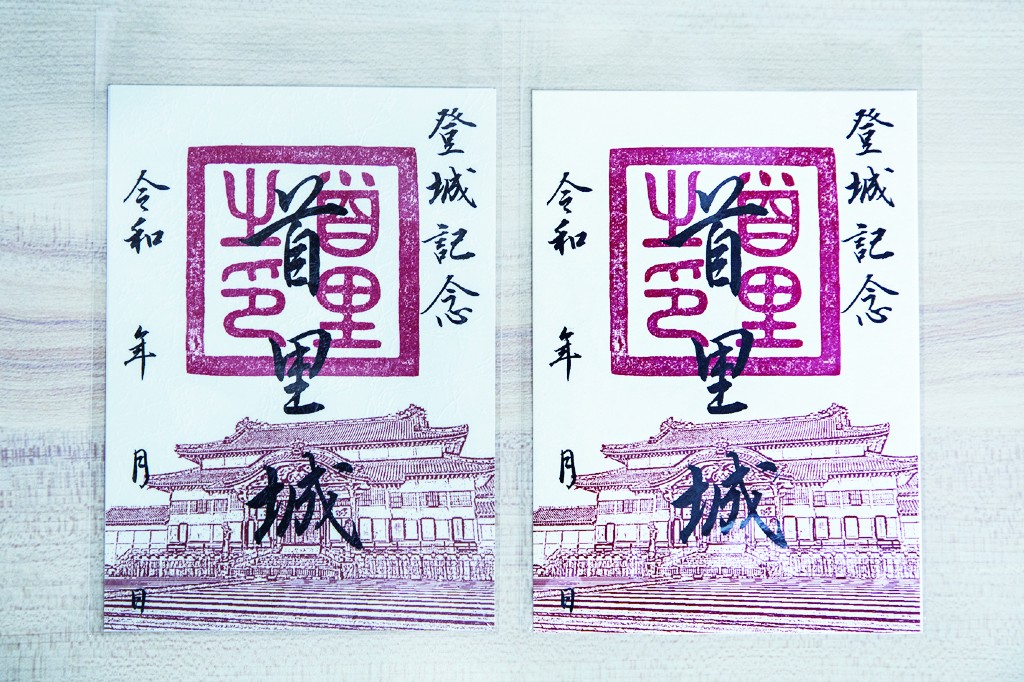 登城記念
首里
之印
首里城
令和 年 月 日
登城記念
首里
之印
首里城
令和 年 月 日